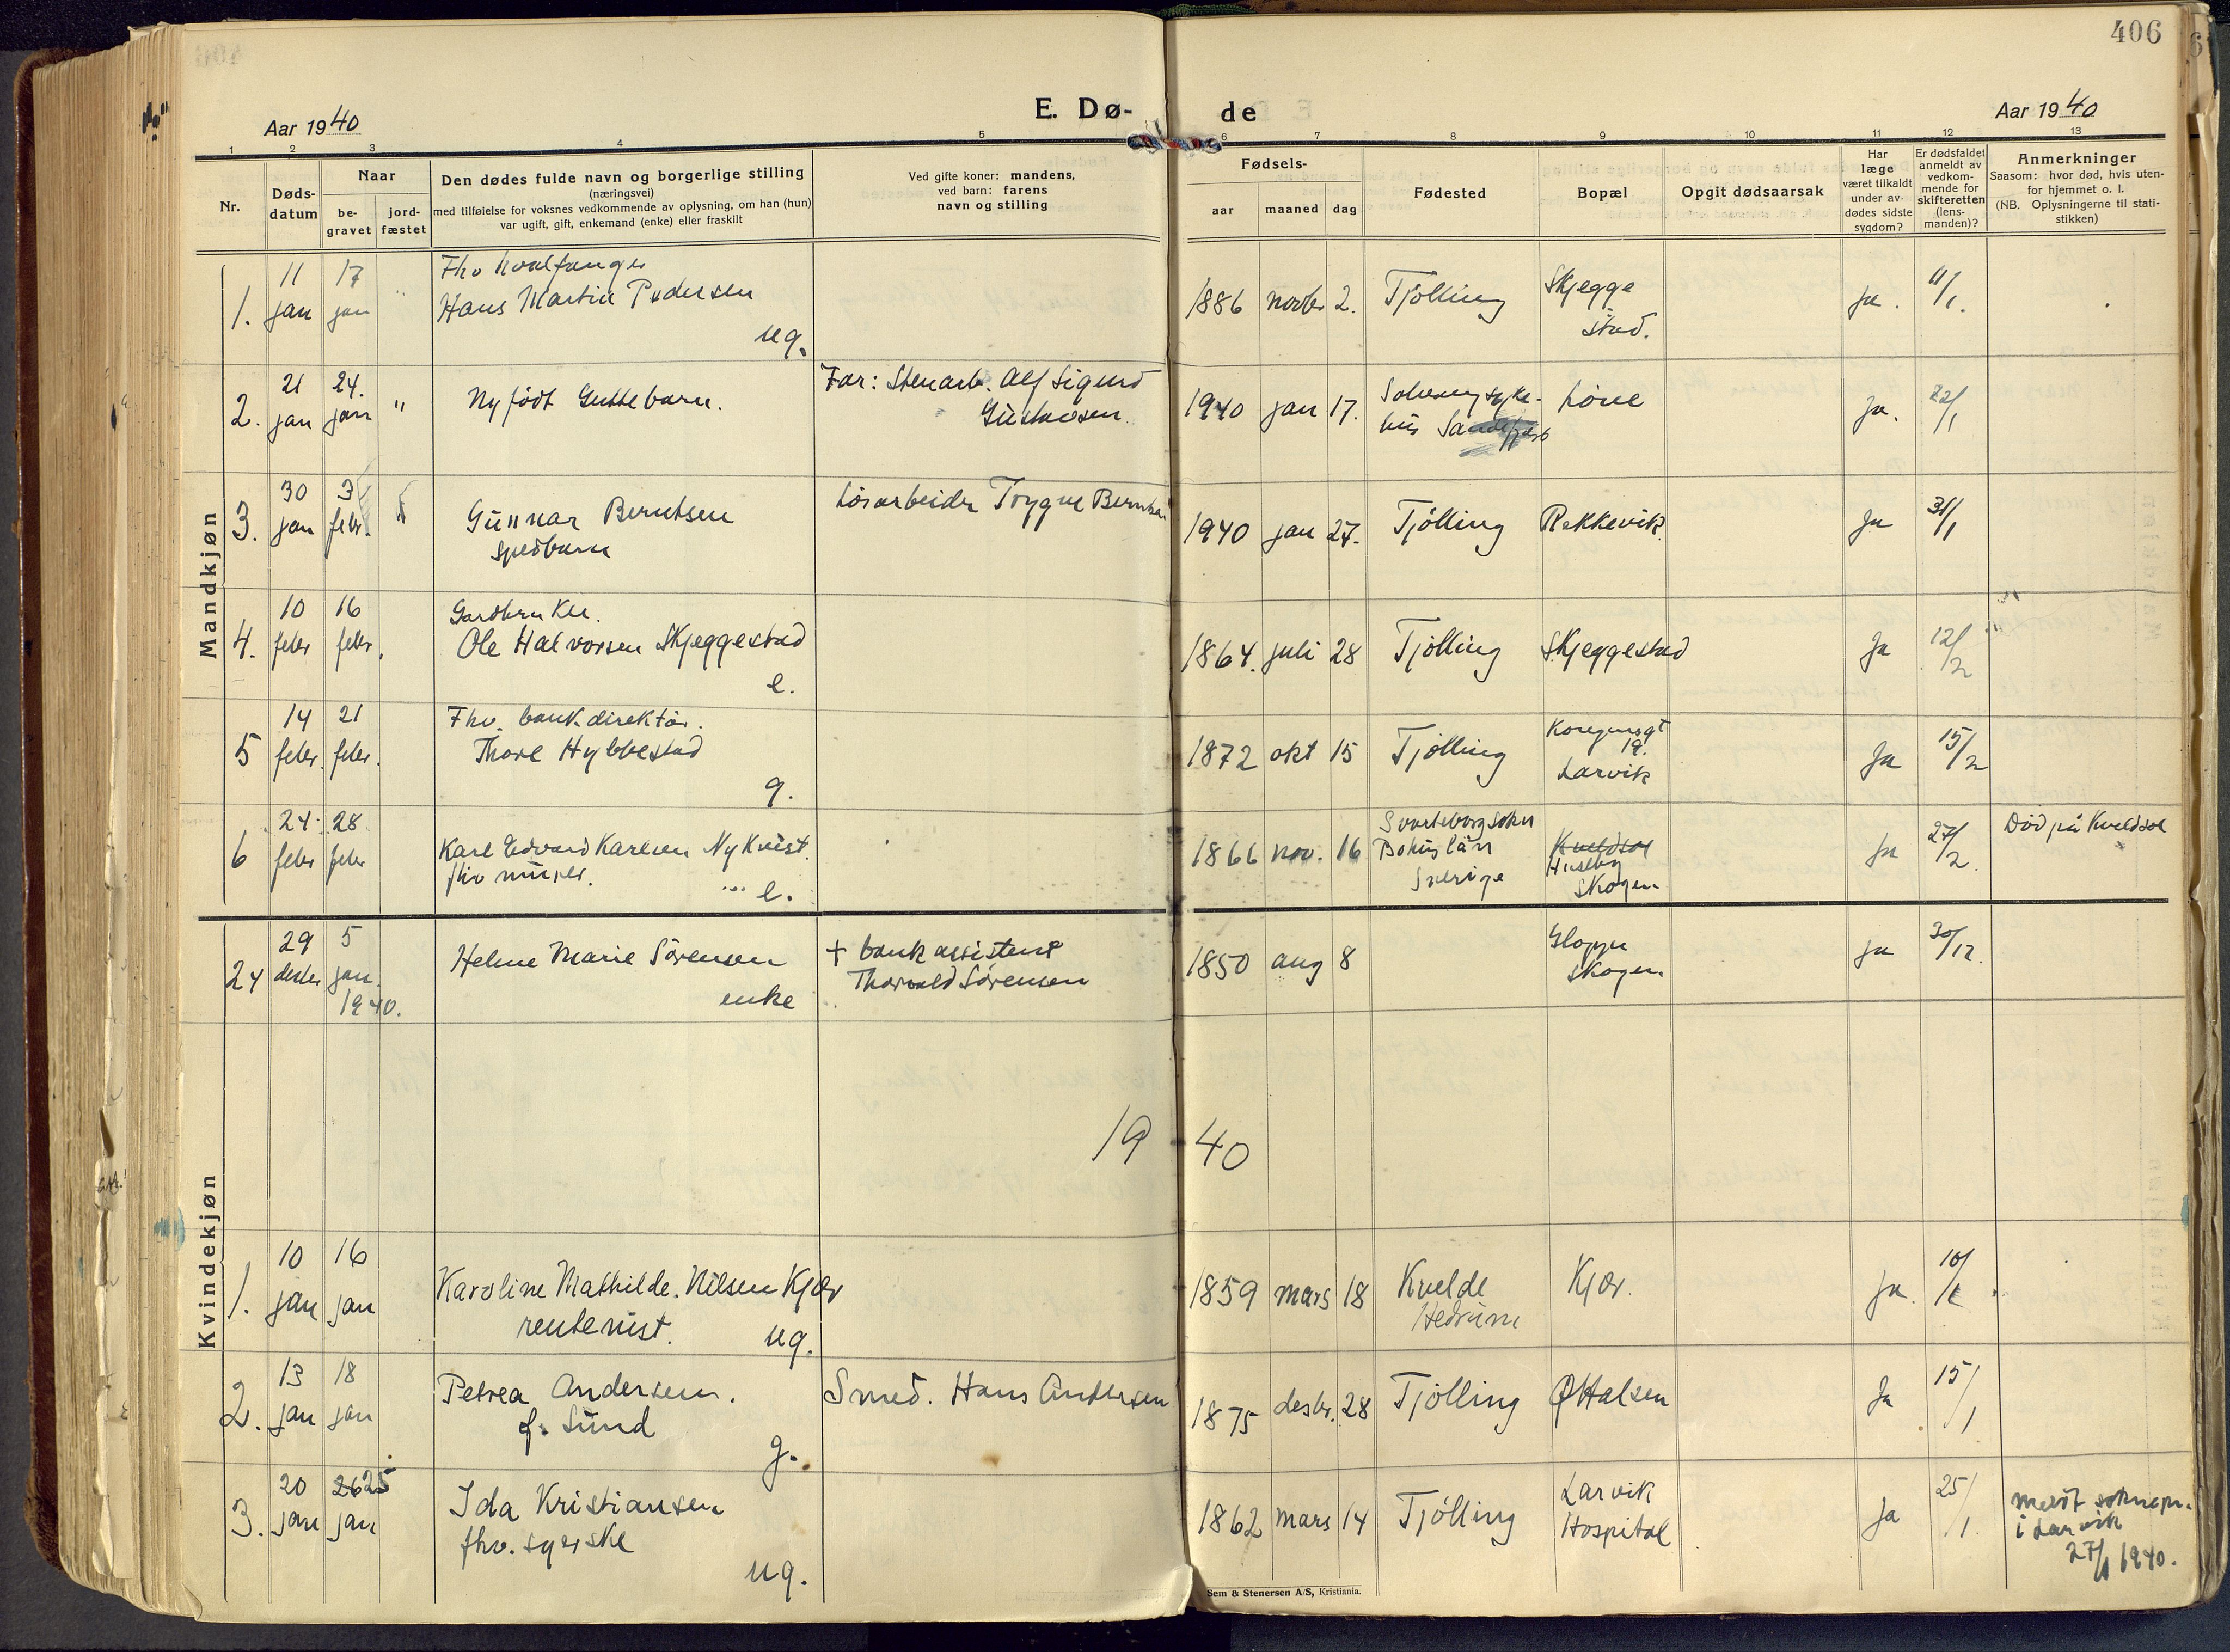 406
Aar 1940
E. Dø-
de
Aar 1940
1 2 3 4 5 6 7 8 9 10 11 12 13
Nr.
Døds-
datum
Naar
be-
gravet
jord-
fæstet
Den dødes fulde navn og borgerlige stilling
(næringsvei)
med tilføielse for voksnes vedkommende av oplysning, om han (hun)
var ugift, gift, enkemand (enke) eller fraskilt
Ved gifte koner: mandens,
ved barn: farens
navn og stilling
Fødsels-
aar
maaned
dag
Fødested
Bopæl
Opgit dødsaarsak
Har
læge
været tilkaldt
under av-
dødes sidste
sygdom?
Er dødsfaldet
anmeldt av
vedkom-
mende for
skifteretten
(lens-
manden)?
Anmerkninger
Saasom: hvor død, hvis uten-
for hjemmet o. l.
(NB. Oplysningerne til stati-
stikken)
Mandkjøn
1. 11 jan 17 jan
Fhv hvalfanger
Hans Martin Pedersen
ug.
1886 novbr 2. Tjölling
Skjegge
stad.
ja. 11/1.
2. 21 jan 24. jan "
Nyfödt Guttebarn.
Far: Stenarb. Alf Sigurd
Gustavsen.
1940 jan 17.
Solvang syke-
hus Sandefjord
Löve
ja. 22/1
3. 30 jan 3 febr.
Gunnar Berntsen
spedbarn
Lösarbeider Trygve Berntsen
1940 jan 27. Tjölling Rekkevik.
ja 31/1
4. 10 febr 16 febr.
Gardbruker.
Ole Halvorsen Skjeggestad
e.
1864. juli 28 Tjölling Skjeggestad
ja 12/2
5 14 febr. 21 febr.
Fhv. bankdirektör.
Thore Hybbestad
g.
1872 okt 15 Tjölling
Kongensgt
19.
Larvik
ja 15/2
6 24. febr 28 febr
Karl Edvard Karlsen Nykvist.
fhv murer.
e.
1866 nov. 16
Svarteborg sokn
Bohus län
Sverige
Kveldsol
Huseby
Skogen
ja 27/2.
Död på Kveldsol
Kvindekjøn
24 29 desbr 5 jan. 1940.
Helene Marie Sörensen
enke
+ bankassistent
Thorvald Sörensen
1850 aug 8
Gloppe
skogen
ja 30/12.
1940
1. 10 jan 16 jan
Karoline Mathilde. Nilsen Kjær
rentenist.
ug.
1859 mars 18
Kvelde
Hedrum
Kjær.
ja. 10/1
2. 13 jan 18 jan
Petrea Andersen.
f. Sund
g.
Smed. Hans Andersen
1875 desbr. 28 Tjölling Ø Halsen
ja 15/1
3. 20 jan 26 25 jan
Ida Kristiansen
fhv. syerske
ug.
1862 mars 14 Tjölling
Larvik
Hospital
ja 25/1.
meldt sokнepr.
i Larvik
27/1 1940.
Sem & Stenersen A/S, Kristiania.